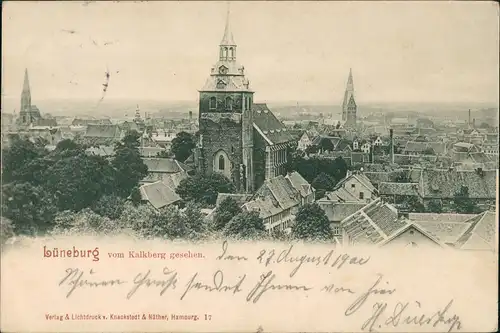 Lüneburg vom Kalkberg gesehen.
den 27 August 1900
Schönen Gruß sendet Ihnen von hier
Verlag & Lichtdruck v. Knackstedt & Näther, Hamburg. 17